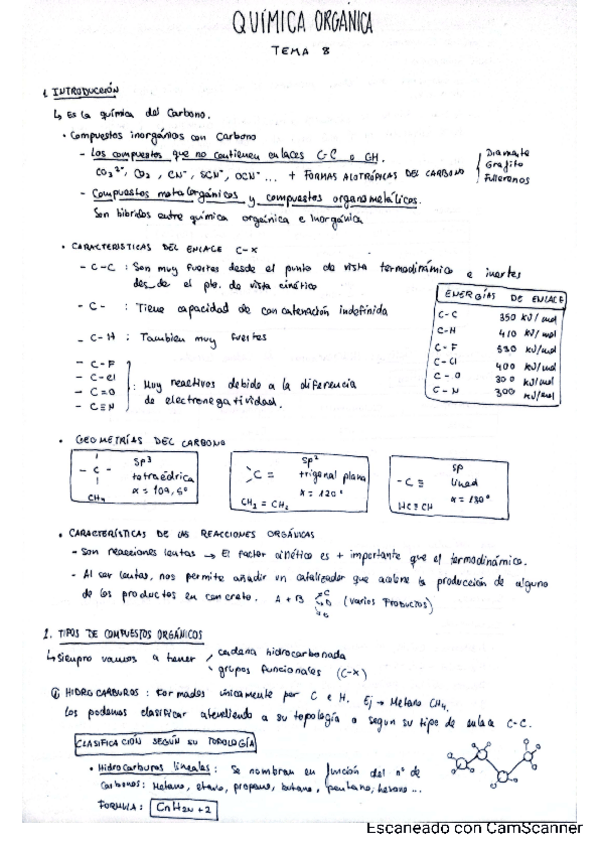 QUÍMICA ORGÁNICA
TEMA 8
1. INTRODUCCIÓN
↳ Es la química del Carbono.
• Compuestos inorgánicos con Carbono
- Los compuestos que no contienen enlaces C-C o CH.
CO₃²⁻, CO₂, CN⁻, SCN⁻, OCN⁻... + FORMAS ALOTRÓPICAS DEL CARBONO
Diamante
Grafito
Fullerenos
- Compuestos metalorgánicos y compuestos organometálicos.
Son híbridos entre química orgánica e Inorgánica
• CARACTERISTICAS DEL ENLACE C-X
- C-C : Son muy fuertes desde el punto de vista termodinámico e inertes
desde el pto. de vista cinético
- C- : Tiene capacidad de concatenación indefinida
- C-H : Tambien muy fuertes
- C-F
- C-Cl
- C=O
- C≡N
: Muy reactivos debido a la diferencia
de electronegatividad.
ENERGÍAS DE ENLACE
C-C 350 KJ/mol
C-H 410 KJ/mol
C-F 530 KJ/mol
C-Cl 400 KJ/mol
C-O 300 KJ/mol
C-N 300 KJ/mol
• GEOMETRÍAS DEL CARBONO
- C - sp3
tetraédrica
α = 109,5°
CH₄
C= sp2
trigonal plana
α = 120°
CH₂ = CH₂
-C≡ sp
lineal
α = 180°
HC≡CH
• CARACTERÍSTICAS DE LAS REACCIONES ORGÁNICAS
- Son reacciones lentas → El factor cinético es + importante que el termodinámico.
- Al ser lentas, nos permite añadir un catalizador que acelere la producción de alguno
de los productos en concreto. A + B → C
→ D (varios Productos)
2. TIPOS DE COMPUESTOS ORGÁNICOS
↳ Siempre vamos a tener cadena hidrocarbonada
grupos funcionales (C-X)
① HIDROCARBUROS : Formados únicamente por C e H. Ej → Metano CH₄.
Los podemos clasificar atendiendo a su topología o segun su tipo de enlace C-C.
CLASIFICACIÓN SEGÚN SU TOPOLOGÍA
• Hidrocarburos lineales : Se nombran en función del nº de
Carbonos: Metano, etano, propano, butano, pentano, hexano...
FORMULA: CnH2n+2
Escaneado con CamScanner